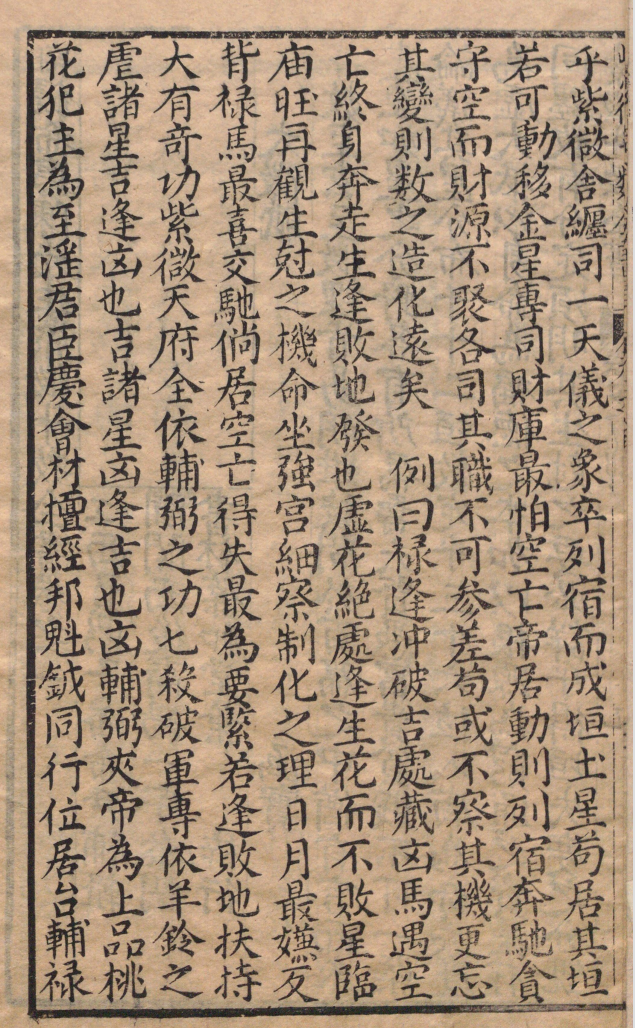 乎紫微舍纏司一天儀之象卒列宿而成垣土星苟居其垣
若可動移金星專司財庫最怕空亡帝居動則列宿奔馳貪
守空而財源不聚各司其職不可参差苟或不察其機更忘
其變則数之造化遠矣　例曰禄逢冲破吉處藏凶馬遇空
亡終身奔走生逢敗地發也虚花絶處逢生花而不敗星臨
庙旺再觀生尅之機命坐強宮細察制化之理日月最嫌反
背禄馬最喜交馳倘居空亡得失最為要緊若逢敗地扶持
大有奇功紫微天府全依輔弼之功七殺破軍專依羊鈴之
虐諸星吉逢凶也吉諸星凶逢吉也凶輔弼夾帝為上品桃
花犯主為至滛君臣慶會材擅經邦魁鉞同行位居台輔禄